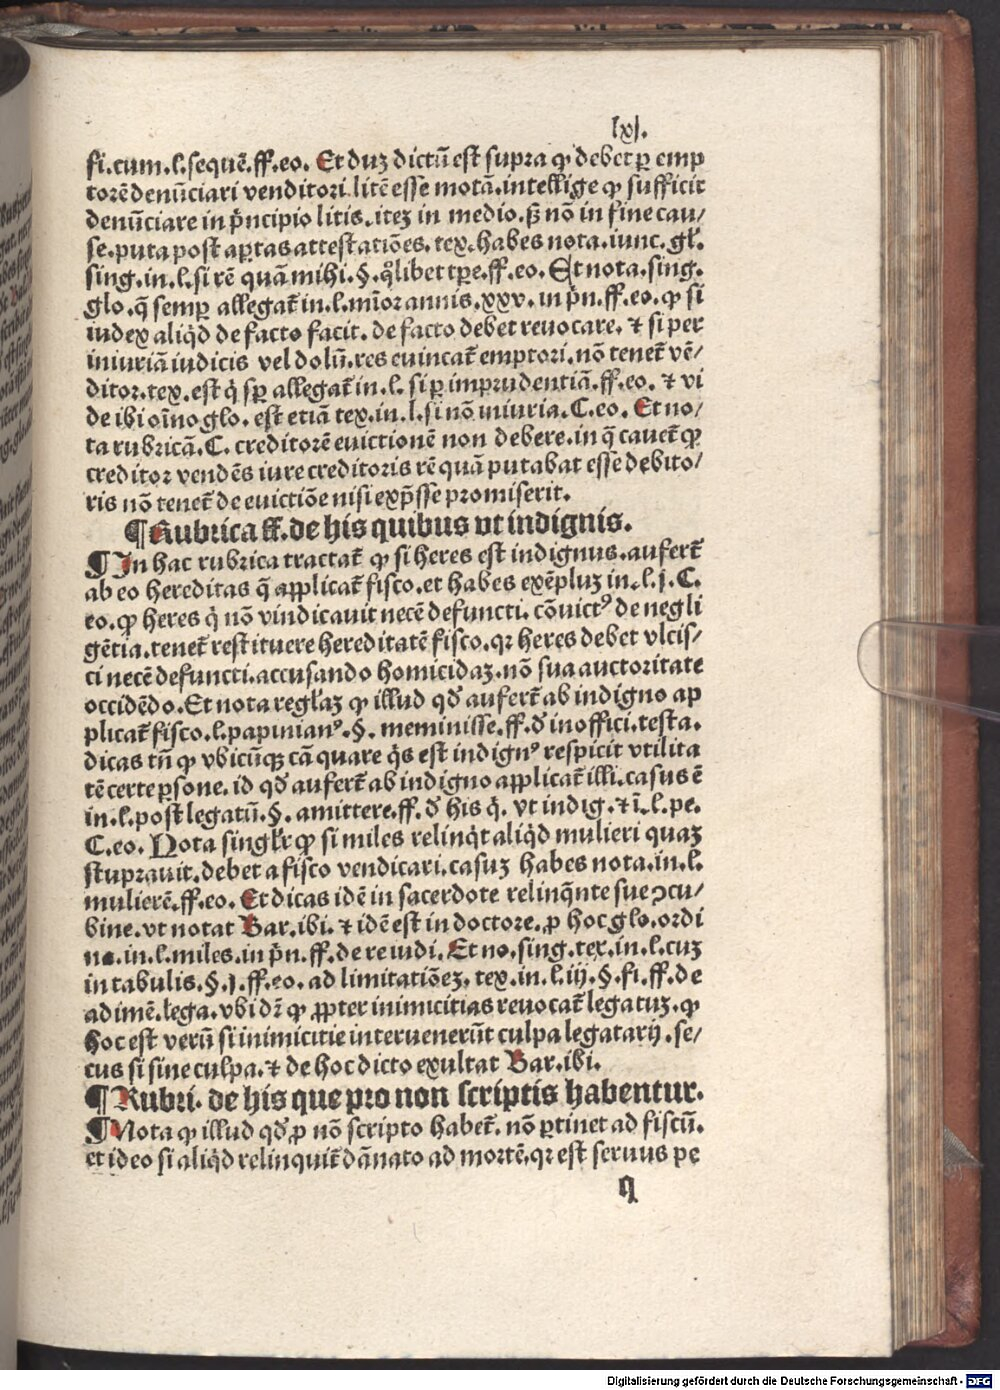 lxj.
fi.cum.l.sequẽ.ff.eo. Et duꝫ dictũ est supra ꝙ debet ꝑ emp
torẽ denũciari venditori litẽ esse motã.intellige ꝙ sufficit
denũciare in p̃ncipio litis.iteꝫ in medio.sꝫ nõ in fine cau/
se.puta post aꝑtas attestatiões.tex.habes nota.iunc.gł.
sing.in.l.si rẽ quã mihi.§.q̊libet tꝑe.ff.eo.Et nota.sing.
glo.q̃ semꝑ allegat̃ in.l.mĩor annis.xxv.in p̃n.ff.eo.ꝙ si
iudex aliq̇d de facto facit.de facto debet reuocare.⁊ si per
iniuriã iudicis vel dolũ.res euincat̃ emptori.nõ tenet̃ vẽ/
ditor.tex.est q̇ sꝑ allegat̃ in.l. si ꝑ imprudentiã.ff.eo. ⁊ vi
de ibi oĩno glo. est etiã tex.in.l.si nõ iniuria.C.eo. Et no/
ta rubricã.C. creditorẽ euictionẽ non debere.in q̃ cauet̃ ꝙ
creditor vendẽs iure creditoris rẽ quã putabat esse debito/
ris nõ tenet̃ de euictiõe nisi exp̃sse promiserit.
¶Rubrica ff.de his quibus vt indignis.
¶In hac rubrica tractat̃ ꝙ si heres est indignus.aufert̃
ab eo hereditas q̃ applicat̃ fisco.et habes exẽpluꝫ in.l.j.C.
eo.ꝙ heres q̇ nõ vindicauit necẽ defuncti.cõuictꝰ de negli
gẽtia.tenet̃ restituere hereditatẽ fisco.qꝛ heres debet vlcis/
ci necẽ defuncti.accusando homicidaꝫ.nõ sua auctoritate
occidẽdo.Et nota regłaꝫ ꝙ illud qđ aufert̃ ab indigno ap
plicat̃ fisco.l.papinianꝰ.§. meminisse.ff.đ inoffici.testa.
dicas tñ ꝙ vbicũqꝫ cã quare q̇s est indignꝰ respicit vtilita
tẽ certe ꝑsone. id qđ aufert̃ ab indigno applicat̃ illi.casus ẽ
in.l.post legatũ.§. amittere.ff.đ his q̇. vt indig.⁊ ĩ.l.pe.
C.eo. Nota singłr ꝙ si miles relinq̇t aliq̇d mulieri quaꝫ
stuprauit.debet a fisco vendicari.casuꝫ habes nota.in.l.
mulierẽ.ff.eo. Et dicas idẽ in sacerdote relinq̃nte sue ꝯcu/
bine.vt notat Bar.ibi.⁊ idẽ est in doctore.ꝑ hoc glo.ordi
na.in.l.miles.in p̃n.ff.de re iudi. Et no.sing.tex.in.l.cuꝫ
in tabulis.§.j.ff.eo. ad limitatiõeꝫ. tex.in.l.iij.§.fi.ff.de
adimẽ.lega.vbi dr̃ ꝙ ꝓpter inimicitias reuocat̃ legatuꝫ.ꝙ
hoc est verũ si inimicitie interuenerũt culpa legatarij.se/
cus si sine culpa.⁊ de hoc dicto exultat Bar.ibi.
¶Rubri. de his que pro non scriptis habentur.
¶Nota ꝙ illud qđ ꝓ nõ scripto habet̃. nõ ꝑtinet ad fiscũ.
et ideo si aliq̇d relinquit̃ dãnato ad mortẽ.qꝛ est seruus pe
q
Digitalisierung gefördert durch die Deutsche Forschungsgemeinschaft - DFG